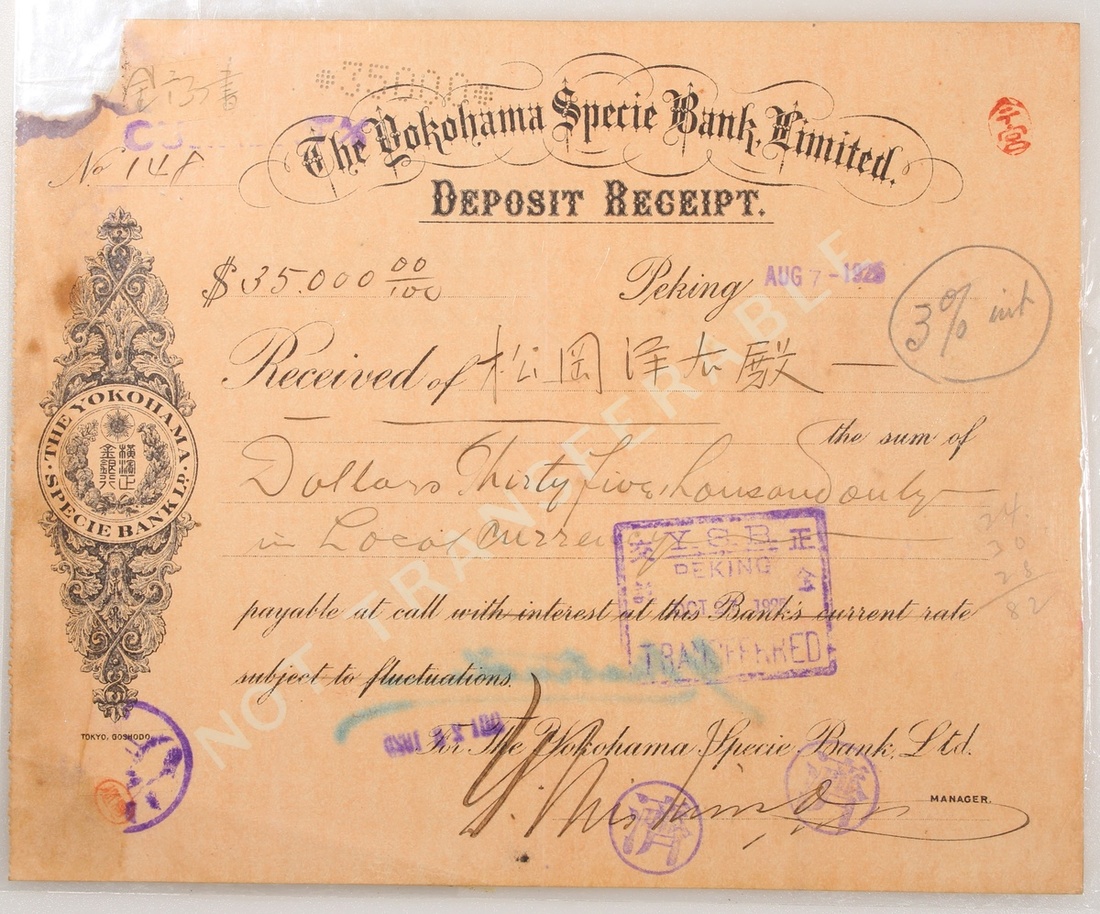 *35000*
The Yokohama Specie Bank, Limited.
No 148
DEPOSIT RECEIPT.
$ 35.000 00/100
Peking AUG 7-1925
3% int
Received of 松岡洋右殿
the sum of
Dollars Thirty five thousand only
in Local Currency
24
30
28
82
Y.S.B. 正金
PEKING
TRANSFERRED
payable at call with interest at this Bank's current rate
subject to fluctuations.
NOT TRANSFERABLE
THE YOKOHAMA
SPECIE BANK LD.
橫濱正
金銀行
TOKYO, GOSHODO
For The Yokohama Specie Bank, Ltd.
MANAGER.
濟
濟